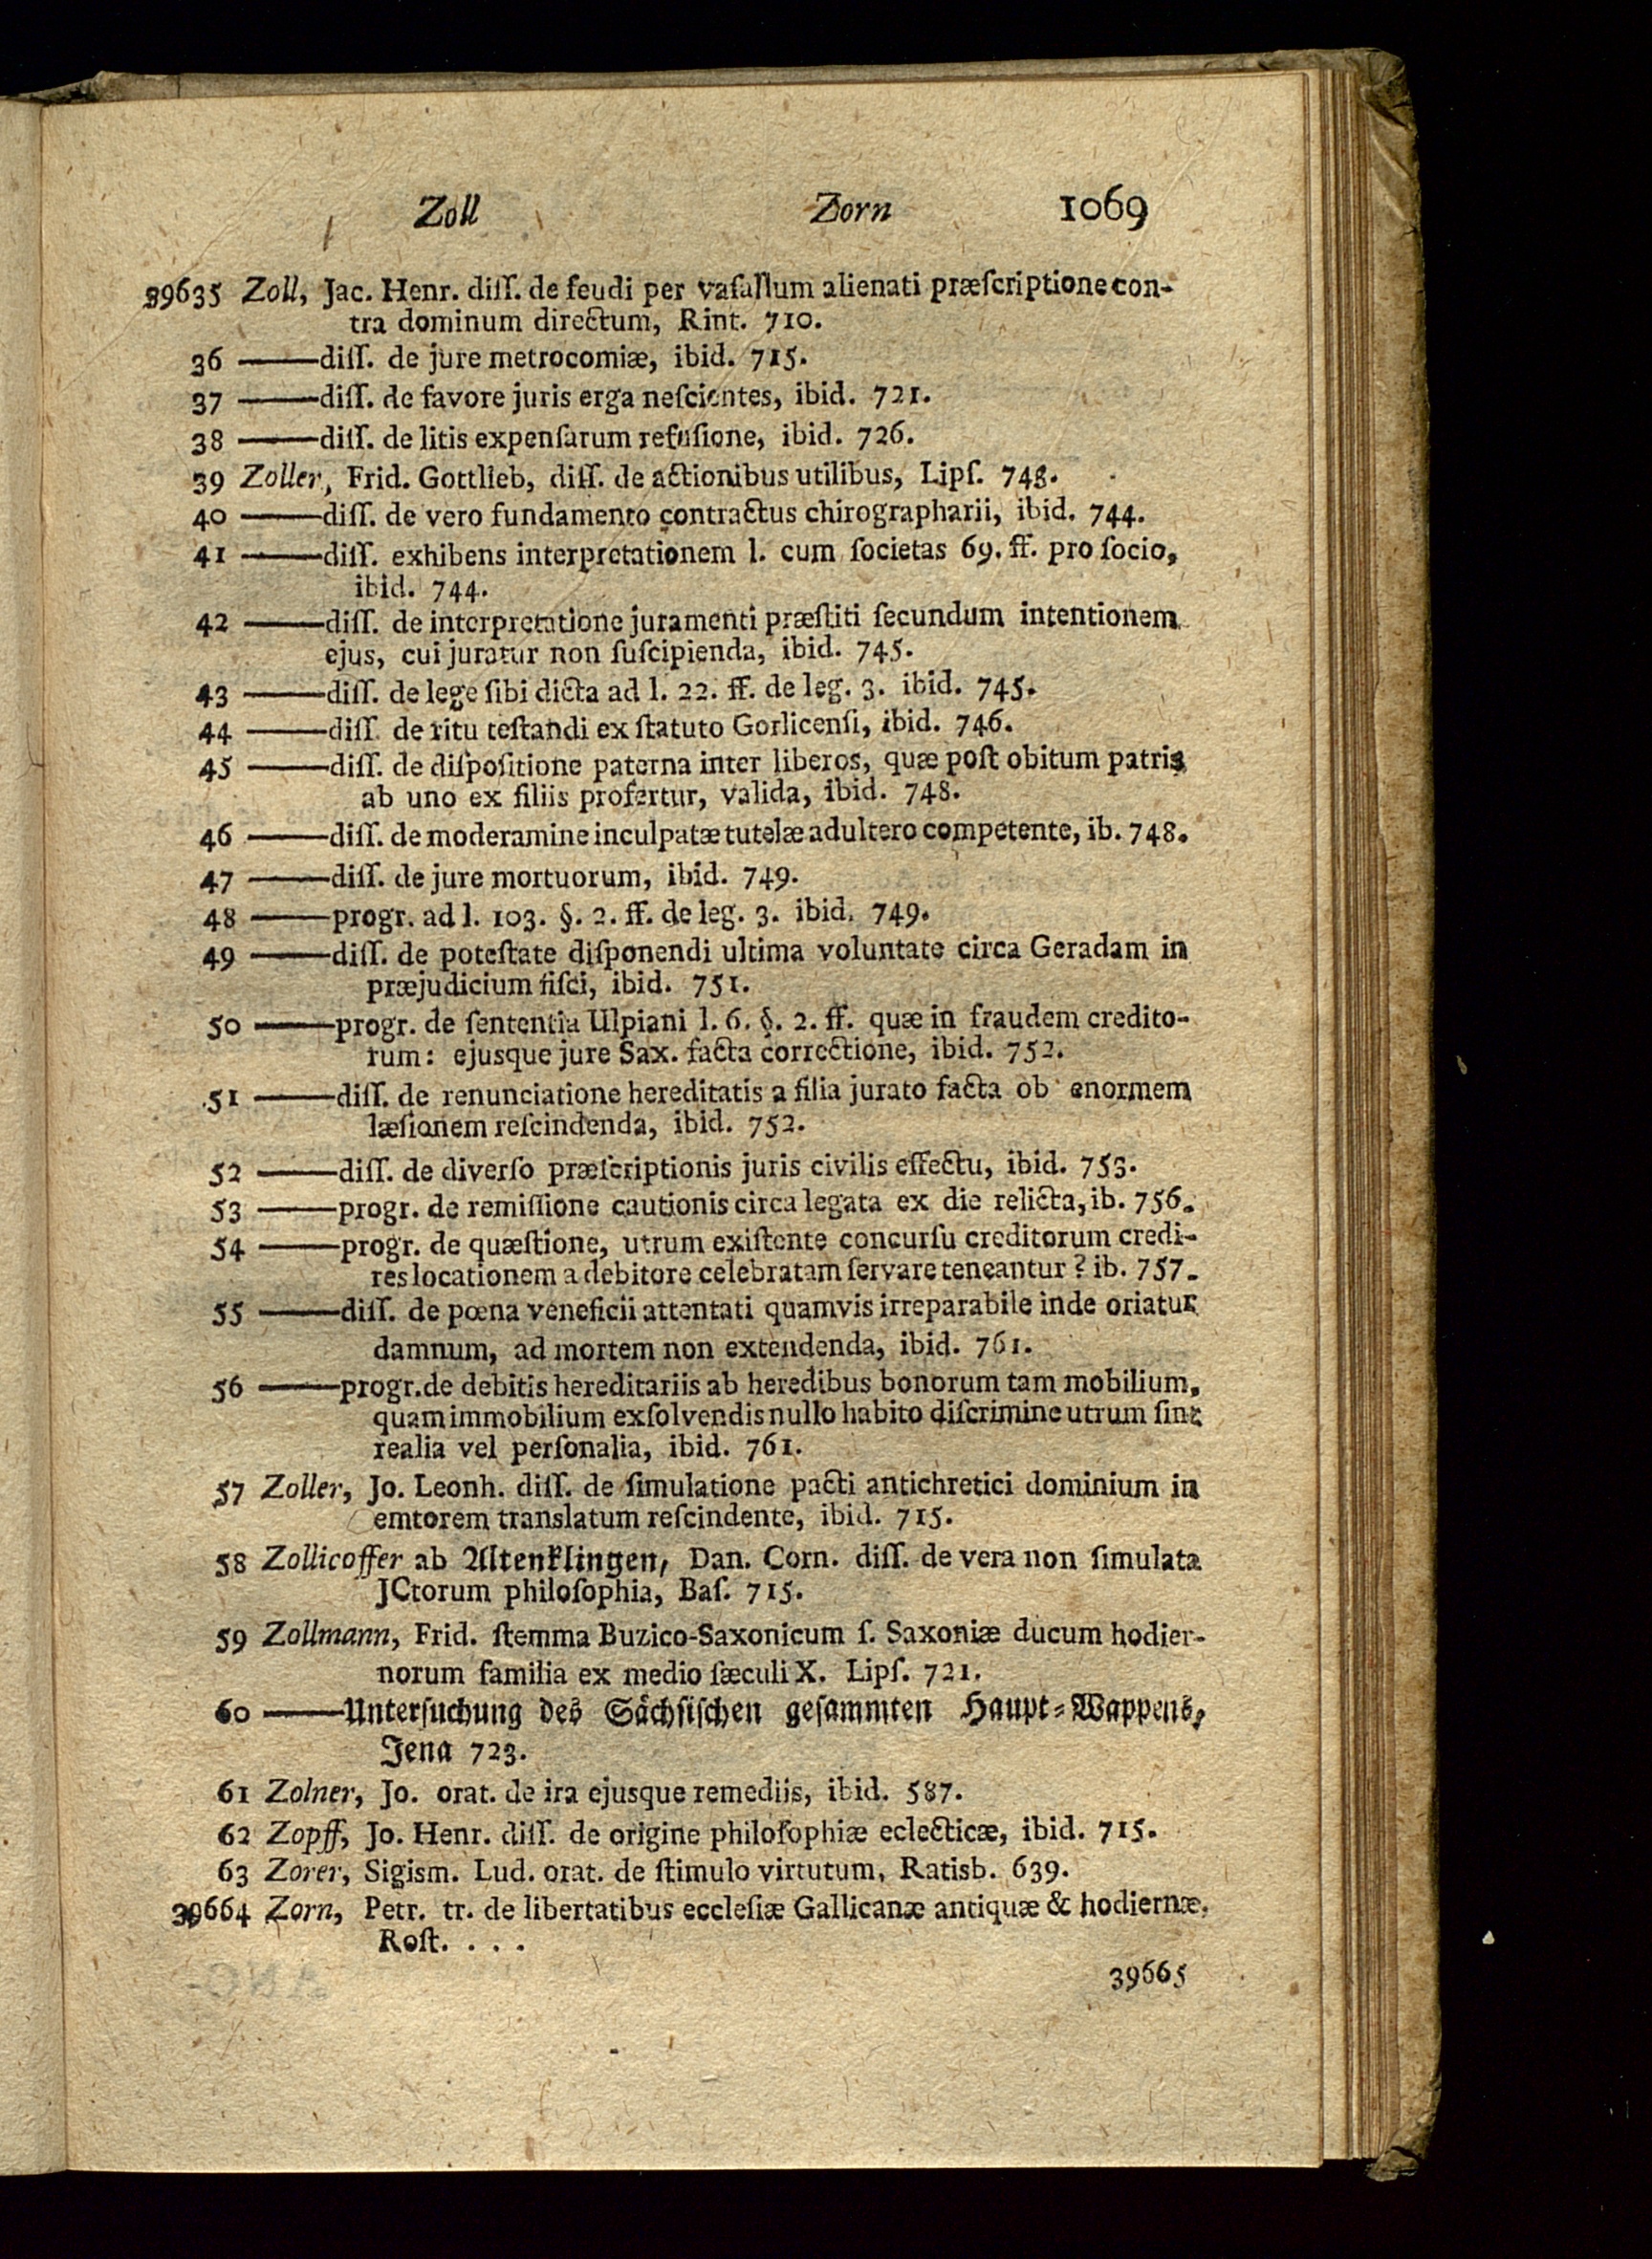 Zoll Zorn 1069
39635 Zoll, Jac. Henr. diſſ. de feudi per vaſallum alienati præſcriptione con-
tra dominum directum, Rint. 710.
36 —— diſſ. de jure metrocomiæ, ibid. 715.
37 —— diſſ. de favore juris erga neſcientes, ibid. 721.
38 —— diſſ. de litis expenſarum refuſione, ibid. 726.
39 Zoller, Frid. Gottlieb, diſſ. de actionibus utilibus, Lipſ. 748.
40 —— diſſ. de vero fundamento contractus chirographarii, ibid. 744.
41 —— diſſ. exhibens interpretationem l. cum ſocietas 69. ff. pro ſocio,
ibid. 744.
42 —— diſſ. de interpretatione juramenti præſtiti ſecundum intentionem
ejus, cui juratur non ſuſcipienda, ibid. 745.
43 —— diſſ. de lege ſibi dicta ad l. 22. ff. de leg. 3. ibid. 745.
44 —— diſſ. de ritu teſtandi ex ſtatuto Gorlicenſi, ibid. 746.
45 —— diſſ. de diſpoſitione paterna inter liberos, quæ poſt obitum patris
ab uno ex filiis profertur, valida, ibid. 748.
46 —— diſſ. de moderamine inculpatæ tutelæ adultero competente, ib. 748.
47 —— diſſ. de jure mortuorum, ibid. 749.
48 —— progr. ad l. 103. §. 2. ff. de leg. 3. ibid. 749.
49 —— diſſ. de poteſtate diſponendi ultima voluntate circa Geradam in
præjudicium fiſci, ibid. 751.
50 —— progr. de ſententia Ulpiani l. 6. §. 2. ff. quæ in fraudem credito-
rum: ejusque jure Sax. facta correctione, ibid. 752.
51 —— diſſ. de renunciatione hereditatis a filia jurato facta ob enormem
læſionem reſcindenda, ibid. 752.
52 —— diſſ. de diverſo præſcriptionis juris civilis effectu, ibid. 753.
53 —— progr. de remiſſione cautionis circa legata ex die relicta, ib. 756.
54 —— progr. de quæſtione, utrum exiſtente concurſu creditorum credi-
res locationem a debitore celebratam ſervare teneantur? ib. 757.
55 —— diſſ. de pœna veneficii attentati quamvis irreparabile inde oriatur
damnum, ad mortem non extendenda, ibid. 761.
56 —— progr. de debitis hereditariis ab heredibus bonorum tam mobilium,
quam immobilium exſolvendis nullo habito diſcrimine utrum ſint
realia vel perſonalia, ibid. 761.
57 Zoller, Jo. Leonh. diſſ. de ſimulatione pacti antichretici dominium in
emtorem translatum reſcindente, ibid. 715.
58 Zollicoffer ab Altenklingen, Dan. Corn. diſſ. de vera non ſimulata
JCtorum philoſophia, Baſ. 715.
59 Zollmann, Frid. ſtemma Buzico-Saxonicum ſ. Saxoniæ ducum hodier-
norum familia ex medio ſæculi X. Lipſ. 721.
60 —— Unterſuchung des Sächſiſchen geſammten Haupt-Wappens,
Jena 723.
61 Zolner, Jo. orat. de ira ejusque remediis, ibid. 587.
62 Zopff, Jo. Henr. diſſ. de origine philoſophiæ eclecticæ, ibid. 715.
63 Zorer, Sigism. Lud. orat. de ſtimulo virtutum, Ratisb. 639.
39664 Zorn, Petr. tr. de libertatibus eccleſiæ Gallicanæ antiquæ & hodiernæ,
Roſt. . . .
39665